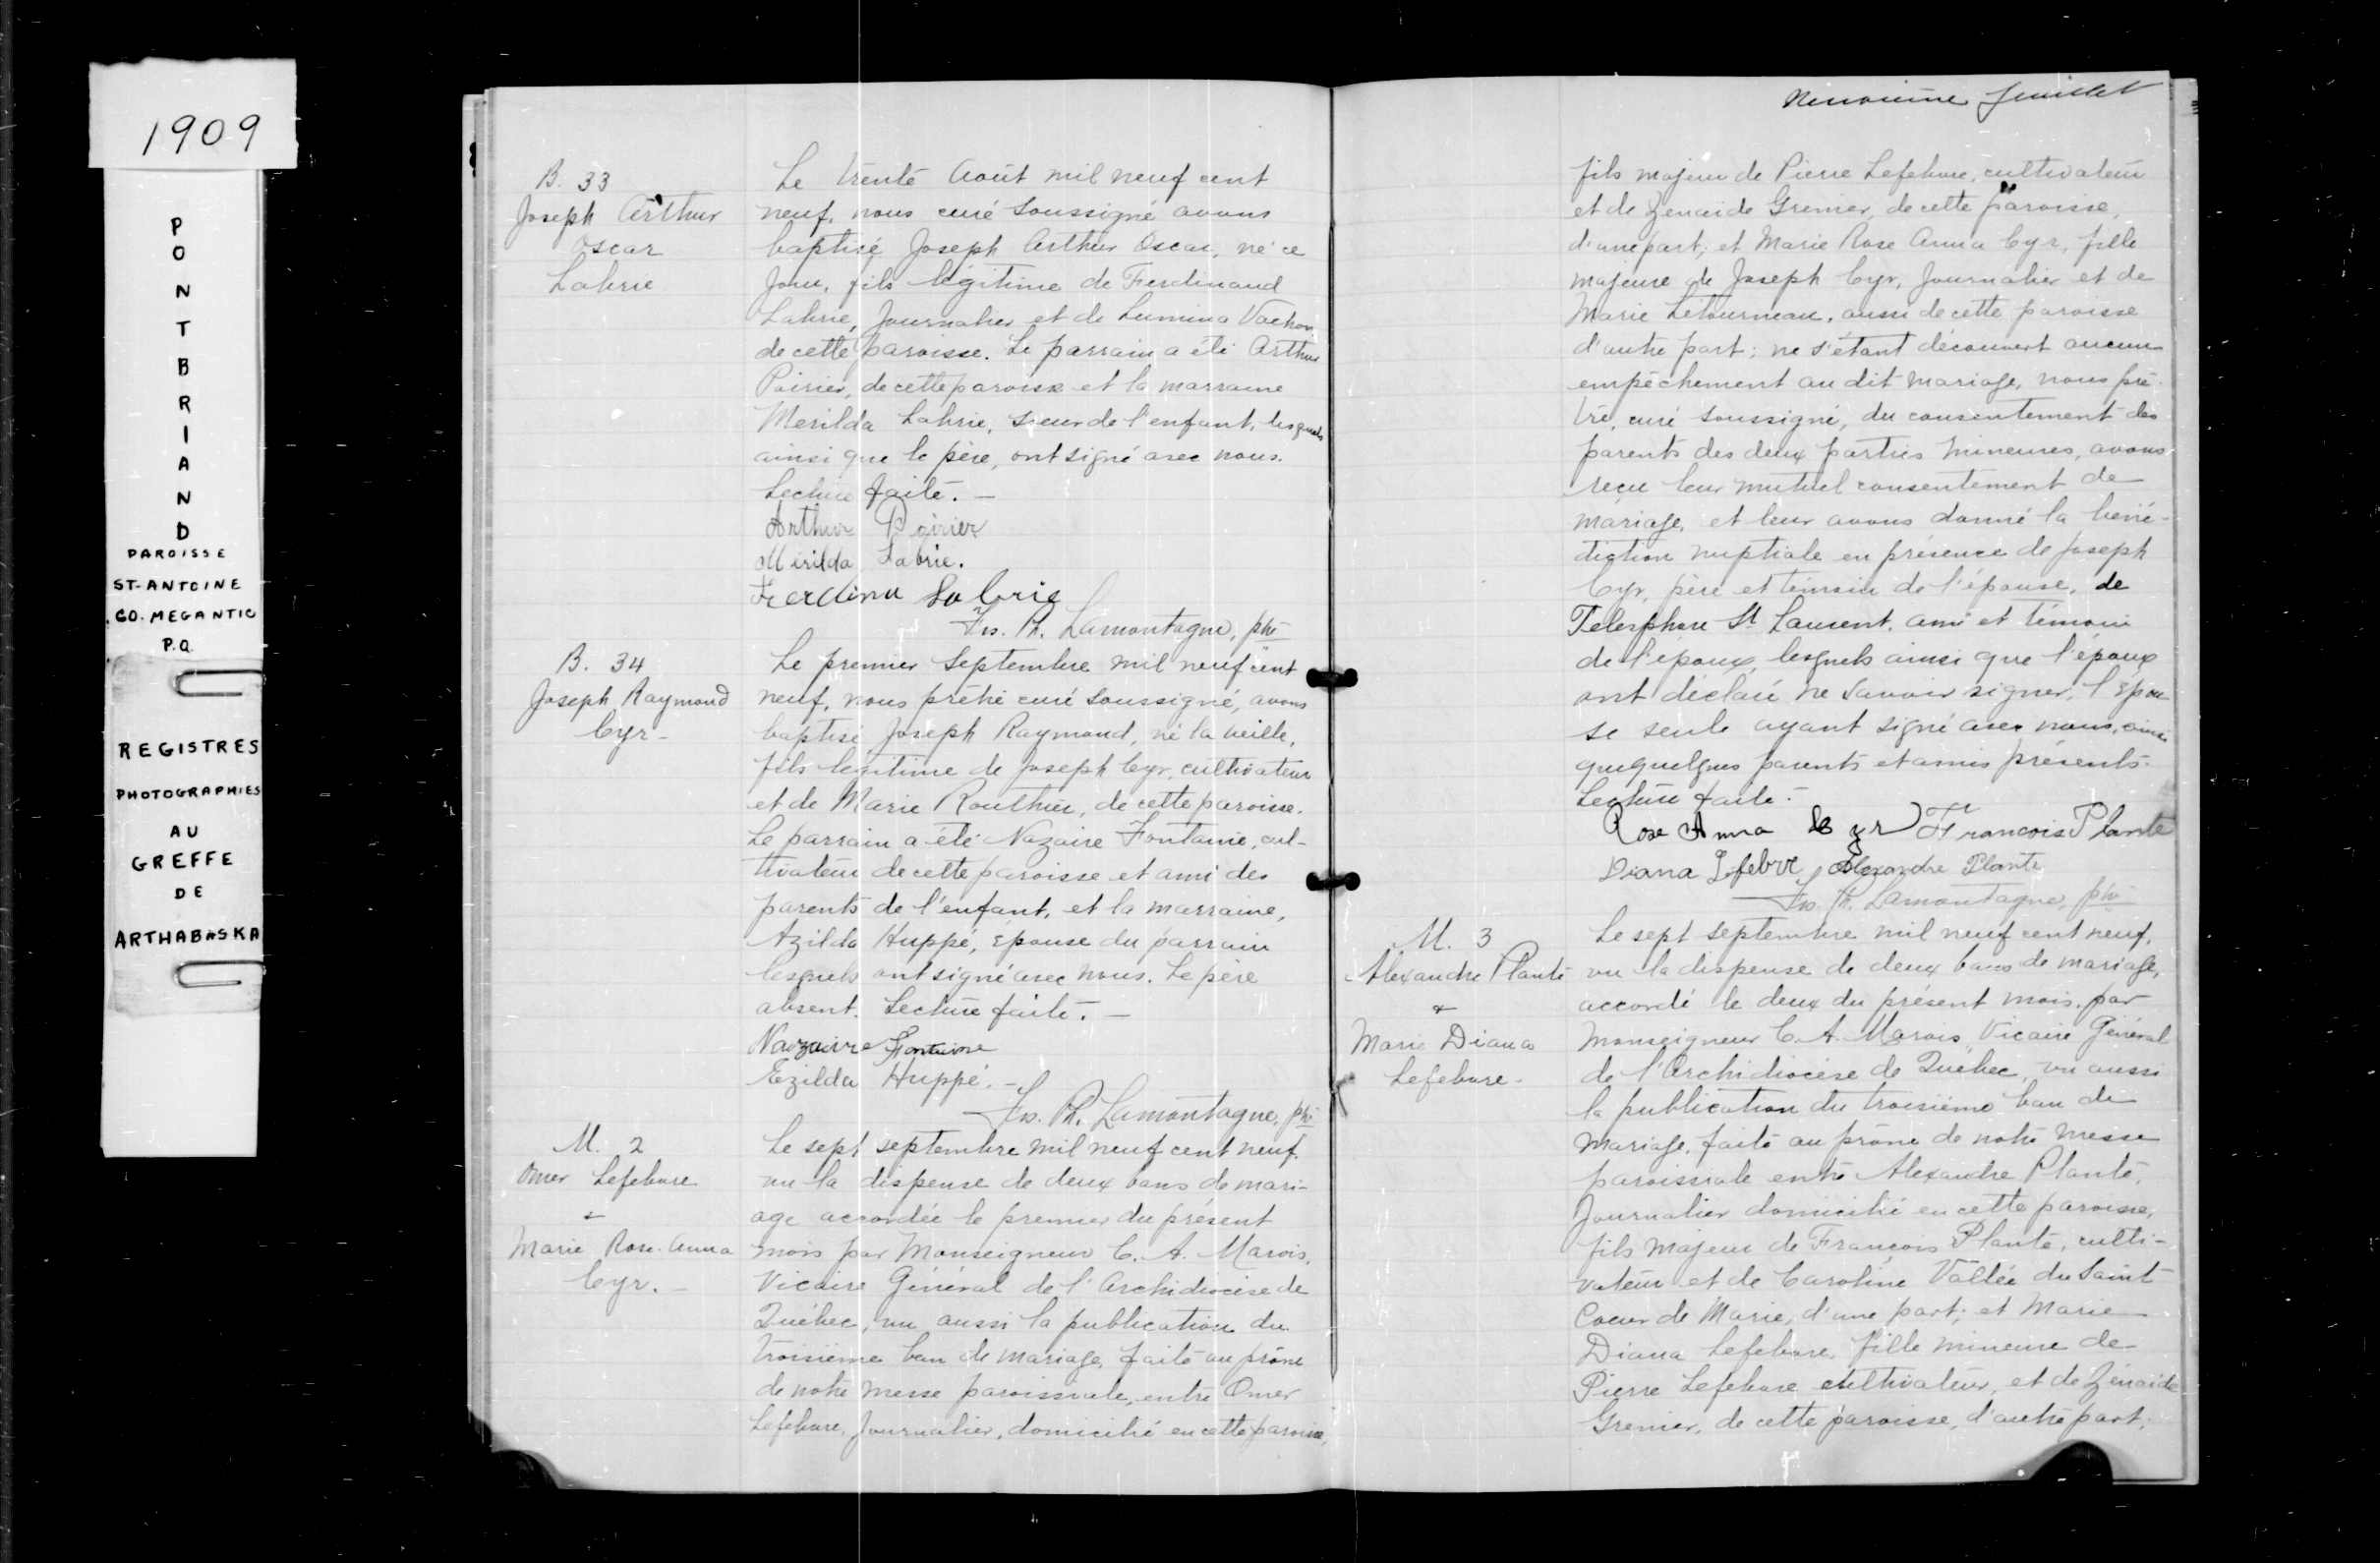 1909
PONTBRIAND
PAROISSE
ST-ANTOINE
CO. MEGANTIC
P.Q.
REGISTRES
PHOTOGRAPHIES
AU
GREFFE
DE
ARTHABASKA
B. 33
Joseph Arthur
Oscar
Labrie
Le trente Août mil neuf cent
neuf, nous curé soussigné avons
baptisé Joseph Arthur Oscar, né ce
jour, fils légitime de Ferdinand
Labrie, Journalier et de Lumina Vachon
de cette paroisse. Le parrain a été Arthur
Poirier, de cette paroisse et la marraine
Merilda Labrie, soeur de l'enfant, lesquels
ainsi que le père, ont signé avec nous.
Lecture faite. —
Arthur Poirier
Merilda Labrie.
Ferdina Labrie
Frs. Ph. Lamontagne, ptre
B. 34
Joseph Raymond
Cyr -
Le premier Septembre mil neuf cent
neuf, nous prêtre curé soussigné, avons
baptisé Joseph Raymond, né la veille,
fils légitime de Joseph Cyr, cultivateur
et de Marie Routhier, de cette paroisse.
Le parrain a été Nazaire Fontaine, cul-
tivateur de cette paroisse et ami des
parents de l'enfant, et la marraine,
Azilda Huppé, Epouse du parrain
lesquels ont signé avec nous. Le père
absent. Lecture faite. —
Nazaire Fontaine
Ezilda Huppé. -
Frs. Ph. Lamontagne, ptre
M. 2
Omer Lefebvre
&
Marie Rose-Anna
Cyr. -
Le sept septembre mil neuf cent neuf.
vu la dispense de deux bans de mari-
age accordée le premier du présent
mois par Monseigneur C. A. Marois,
Vicaire Général de l'Archidiocèse de
Québec, vu aussi la publication du
troisième ban de mariage, faite au prône
de notre messe paroissiale, entre Omer
Lefebvre, Journalier, domicilié en cette paroisse,
Neuvième feuillet
fils majeur de Pierre Lefebvre, cultivateur
et de Zenaide Grenier, de cette paroisse,
d'une part; et Marie Rose Anna Cyr, fille
majeure de Joseph Cyr, Journalier et de
Marie Letourneau, aussi de cette paroisse
d'autre part; ne s'étant découvert aucun
empêchement au dit mariage, nous prê-
tre, curé soussigné, du consentement des
parents des deux parties mineures, avons
reçu leur mutuel consentement de
mariage, et leur avons donné la béné-
diction nuptiale en présence de Joseph
Cyr, père et témoin de l'épouse, de
Telesphore St Laurent, ami et témoin
de l'epoux, lesquels ainsi que l'époux
ont déclaré ne savoir signer, l'Epou
se seule ayant signé avec nous, ainsi
que quelques parents et amis présents.
Lecture faite. -
Rose Anna Cyr Francois Plante
Diana Lefebvre Alexandre Plante
Frs. Ph. Lamontagne, ptre
M. 3
Alexandre Plante
&
Marie Diana
Lefebvre -
Le sept septembre mil neuf cent neuf,
vu la dispense de deux bans de mariage,
accordé le deux du présent mois, par
Monseigneur C. A. Marois, Vicaire Général
de l'Archidiocèse de Québec, vu aussi
la publication du troisième ban de
mariage, faite au prône de notre messe
paroissiale entre Alexandre Plante,
Journalier domicilié en cette paroisse,
fils majeur de François Plante, culti-
vateur et de Caroline Vallée du Saint
Coeur de Marie, d'une part; et Marie
Diana Lefebvre, fille mineure de
Pierre Lefebvre cultivateur, et de Zénaide
Grenier, de cette paroisse, d'autre part;